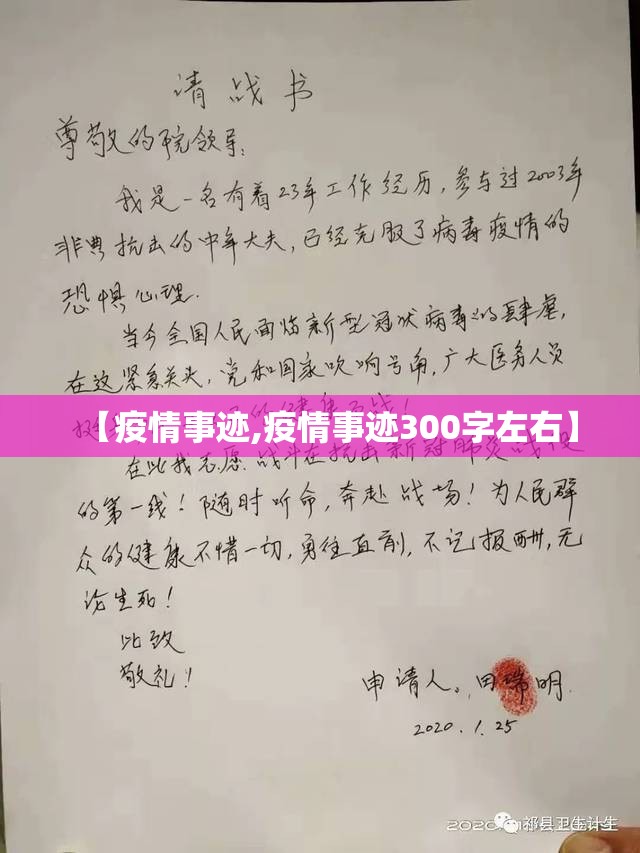 请战书
尊敬的院领导:
我是一名有着23年工作经历,参与过2003年
非典抗击的中年大夫,已经克服了病毒疫情的
恐惧心理.
当今全国人民面临新型冠状病毒的肆虐,
在这紧急关头,党和国家吹响号角,广大医务人员
【疫情事迹,疫情事迹300字左右】
在此我志愿战斗在抗击新冠肺炎战役
的第一线!随时听命,奔赴战场!为人民群
众的健康不惜一切,勇往直前,不记报酬,无
论生死!
此致
敬礼!
申请人:田瑞明
2020.1.25
祁县卫生计生